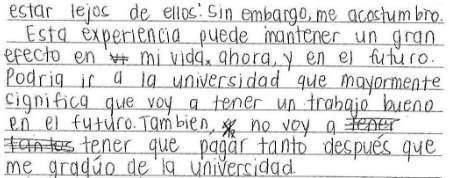 estar lejos de ellos. Sin embargo, me acostumbro.
Esta experiencia puede mantener un gran
efecto en mi vida, ahora, y en el futuro.
Podria ir a la universidad que mayormente
significa que voy a tener un trabajo bueno
en el futuro. Tambien, no voy a tener
tantos tener que pagar tanto después que
me gradúo de la universidad.